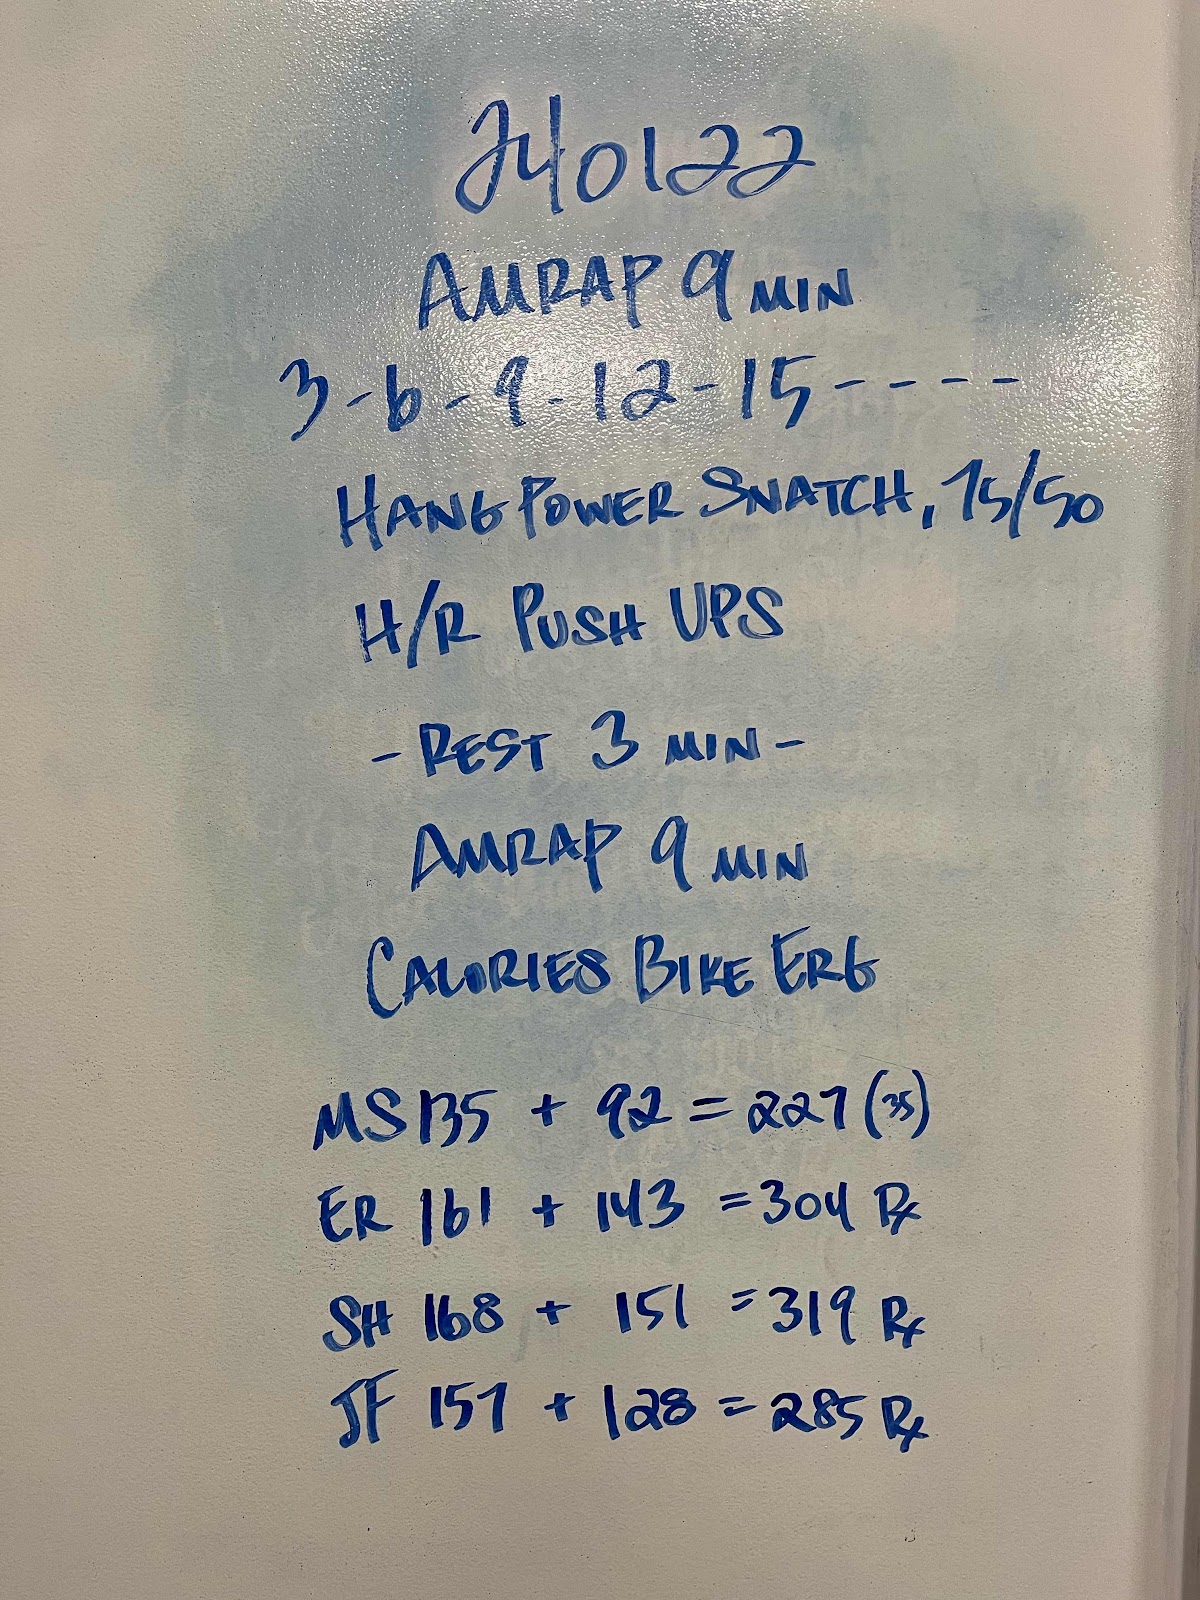 240122
AMRAP 9 MIN
3-6-9-12-15----
HANG POWER SNATCH, 75/50
H/R PUSH UPS
- REST 3 MIN -
AMRAP 9 MIN
CALORIES BIKE ERG
MS 135 + 92 = 227 (35)
ER 161 + 143 = 304 Rx
SH 168 + 151 = 319 Rx
JF 157 + 128 = 285 Rx